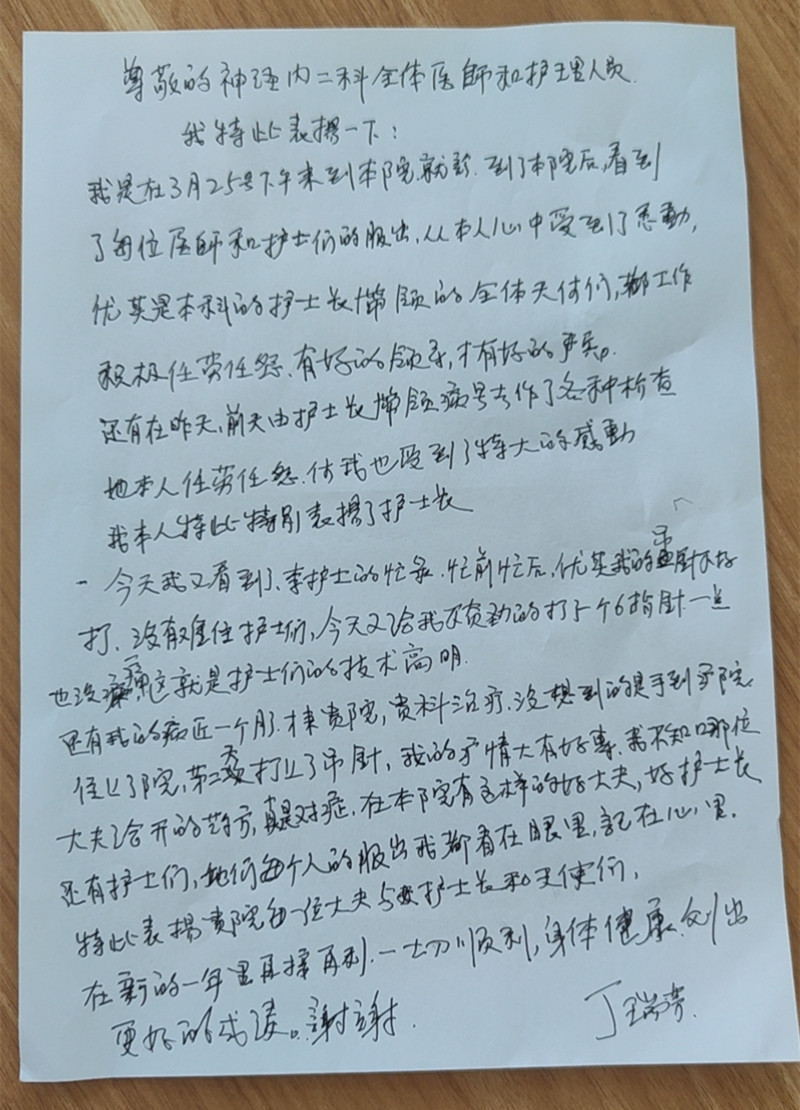 尊敬的神经内二科全体医師和护理人员.
我特此表揚一下：
我是在3月25号下午来到本院就诊.到了本院后,看到
了每位医師和护士们的服出,从本人心中受到了感動,
优其是本科的护士长带领的全体天使们,都工作
积极任劳任怨.有好的领导,才有好的 。
还有在昨天,前天由护士长带领病号去作了各种检查
她本人任劳任怨.使我也受到了特大的感動
我本人特此特别表揚了护士长
-今天我又看到了.李护士的忙录.忙前忙后,优其我的吊针不好
打.没有难住护士们,今天又给我不负勁的打了个6指针一点
也没疼这就是护士们的技术高明.
还有我的病近一个月.才来贵院,贵科治疗.没想到的是手到 院.
住上了院,第二天打上了吊针,我的病情大有好轉.我不知口哪位
大夫给开的药方,真是对症.在本院有这样的好大夫,好护士长
还有护士们,她们每个人的服出我都看在眼里,記在心里.
特此表揚贵院每一位大夫与护士长和天使们,
在新的一年里再接再利.一切顺利,身体健康.创出
更好的成绩。謝謝.
丁瑞芳.